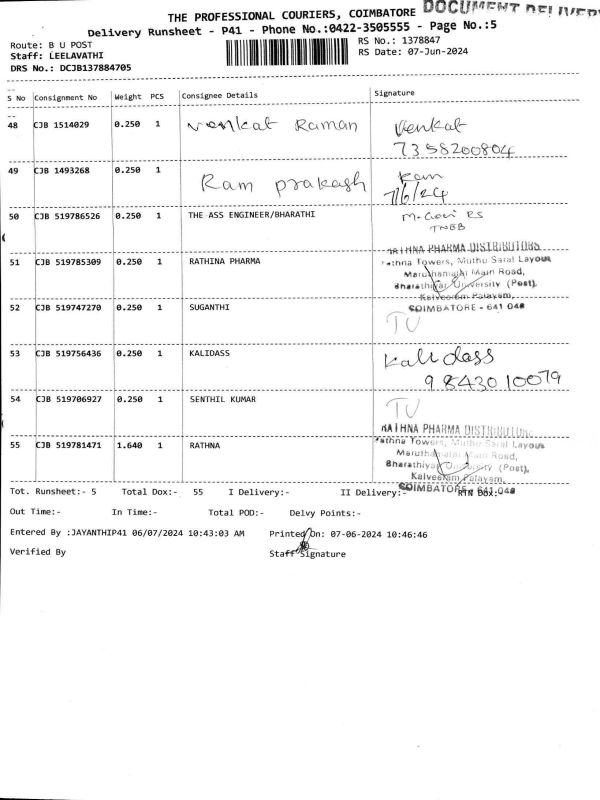 THE PROFESSIONAL COURIERS, COIMBATORE DOCUMENT DELIVERY
Delivery Runsheet - P41 - Phone No.:0422-3505555 - Page No.:5
Route: B U POST
Staff: LEELAVATHI
DRS No.: DCJB137884705
RS No.: 1378847
RS Date: 07-Jun-2024
S No Consignment No Weight PCS Consignee Details Signature
48 CJB 1514029 0.250 1 Venkat Raman Venkat
7358200804
49 CJB 1493268 0.250 1 Ram prakash Ram
7/6/24
50 CJB 519786526 0.250 1 THE ASS ENGINEER/BHARATHI
TNEB
51 CJB 519785309 0.250 1 RATHINA PHARMA
RATHNA PHARMA DISTRIBUTORS
Rathna Towers, Muthu Saral Layout
Maruthamalai Main Road,
Bharathiyar University (Post),
Kalveeram Palayam,
COIMBATORE - 641 046
52 CJB 519747270 0.250 1 SUGANTHI
TU
53 CJB 519756436 0.250 1 KALIDASS Kalidass
9843010079
54 CJB 519706927 0.250 1 SENTHIL KUMAR TU
55 CJB 519781471 1.640 1 RATHNA
RATHNA PHARMA DISTRIBUTORS
Rathna Towers, Muthu Saral Layout
Maruthamalai Main Road,
Bharathiyar University (Post),
Kalveeram Palayam,
COIMBATORE - 641 046
Tot. Runsheet:- 5 Total Dox:- 55 I Delivery:- II Delivery:- RTN Dox:-
Out Time:- In Time:- Total POD:- Delvy Points:-
Entered By :JAYANTHIP41 06/07/2024 10:43:03 AM Printed On: 07-06-2024 10:46:46
Verified By Staff Signature